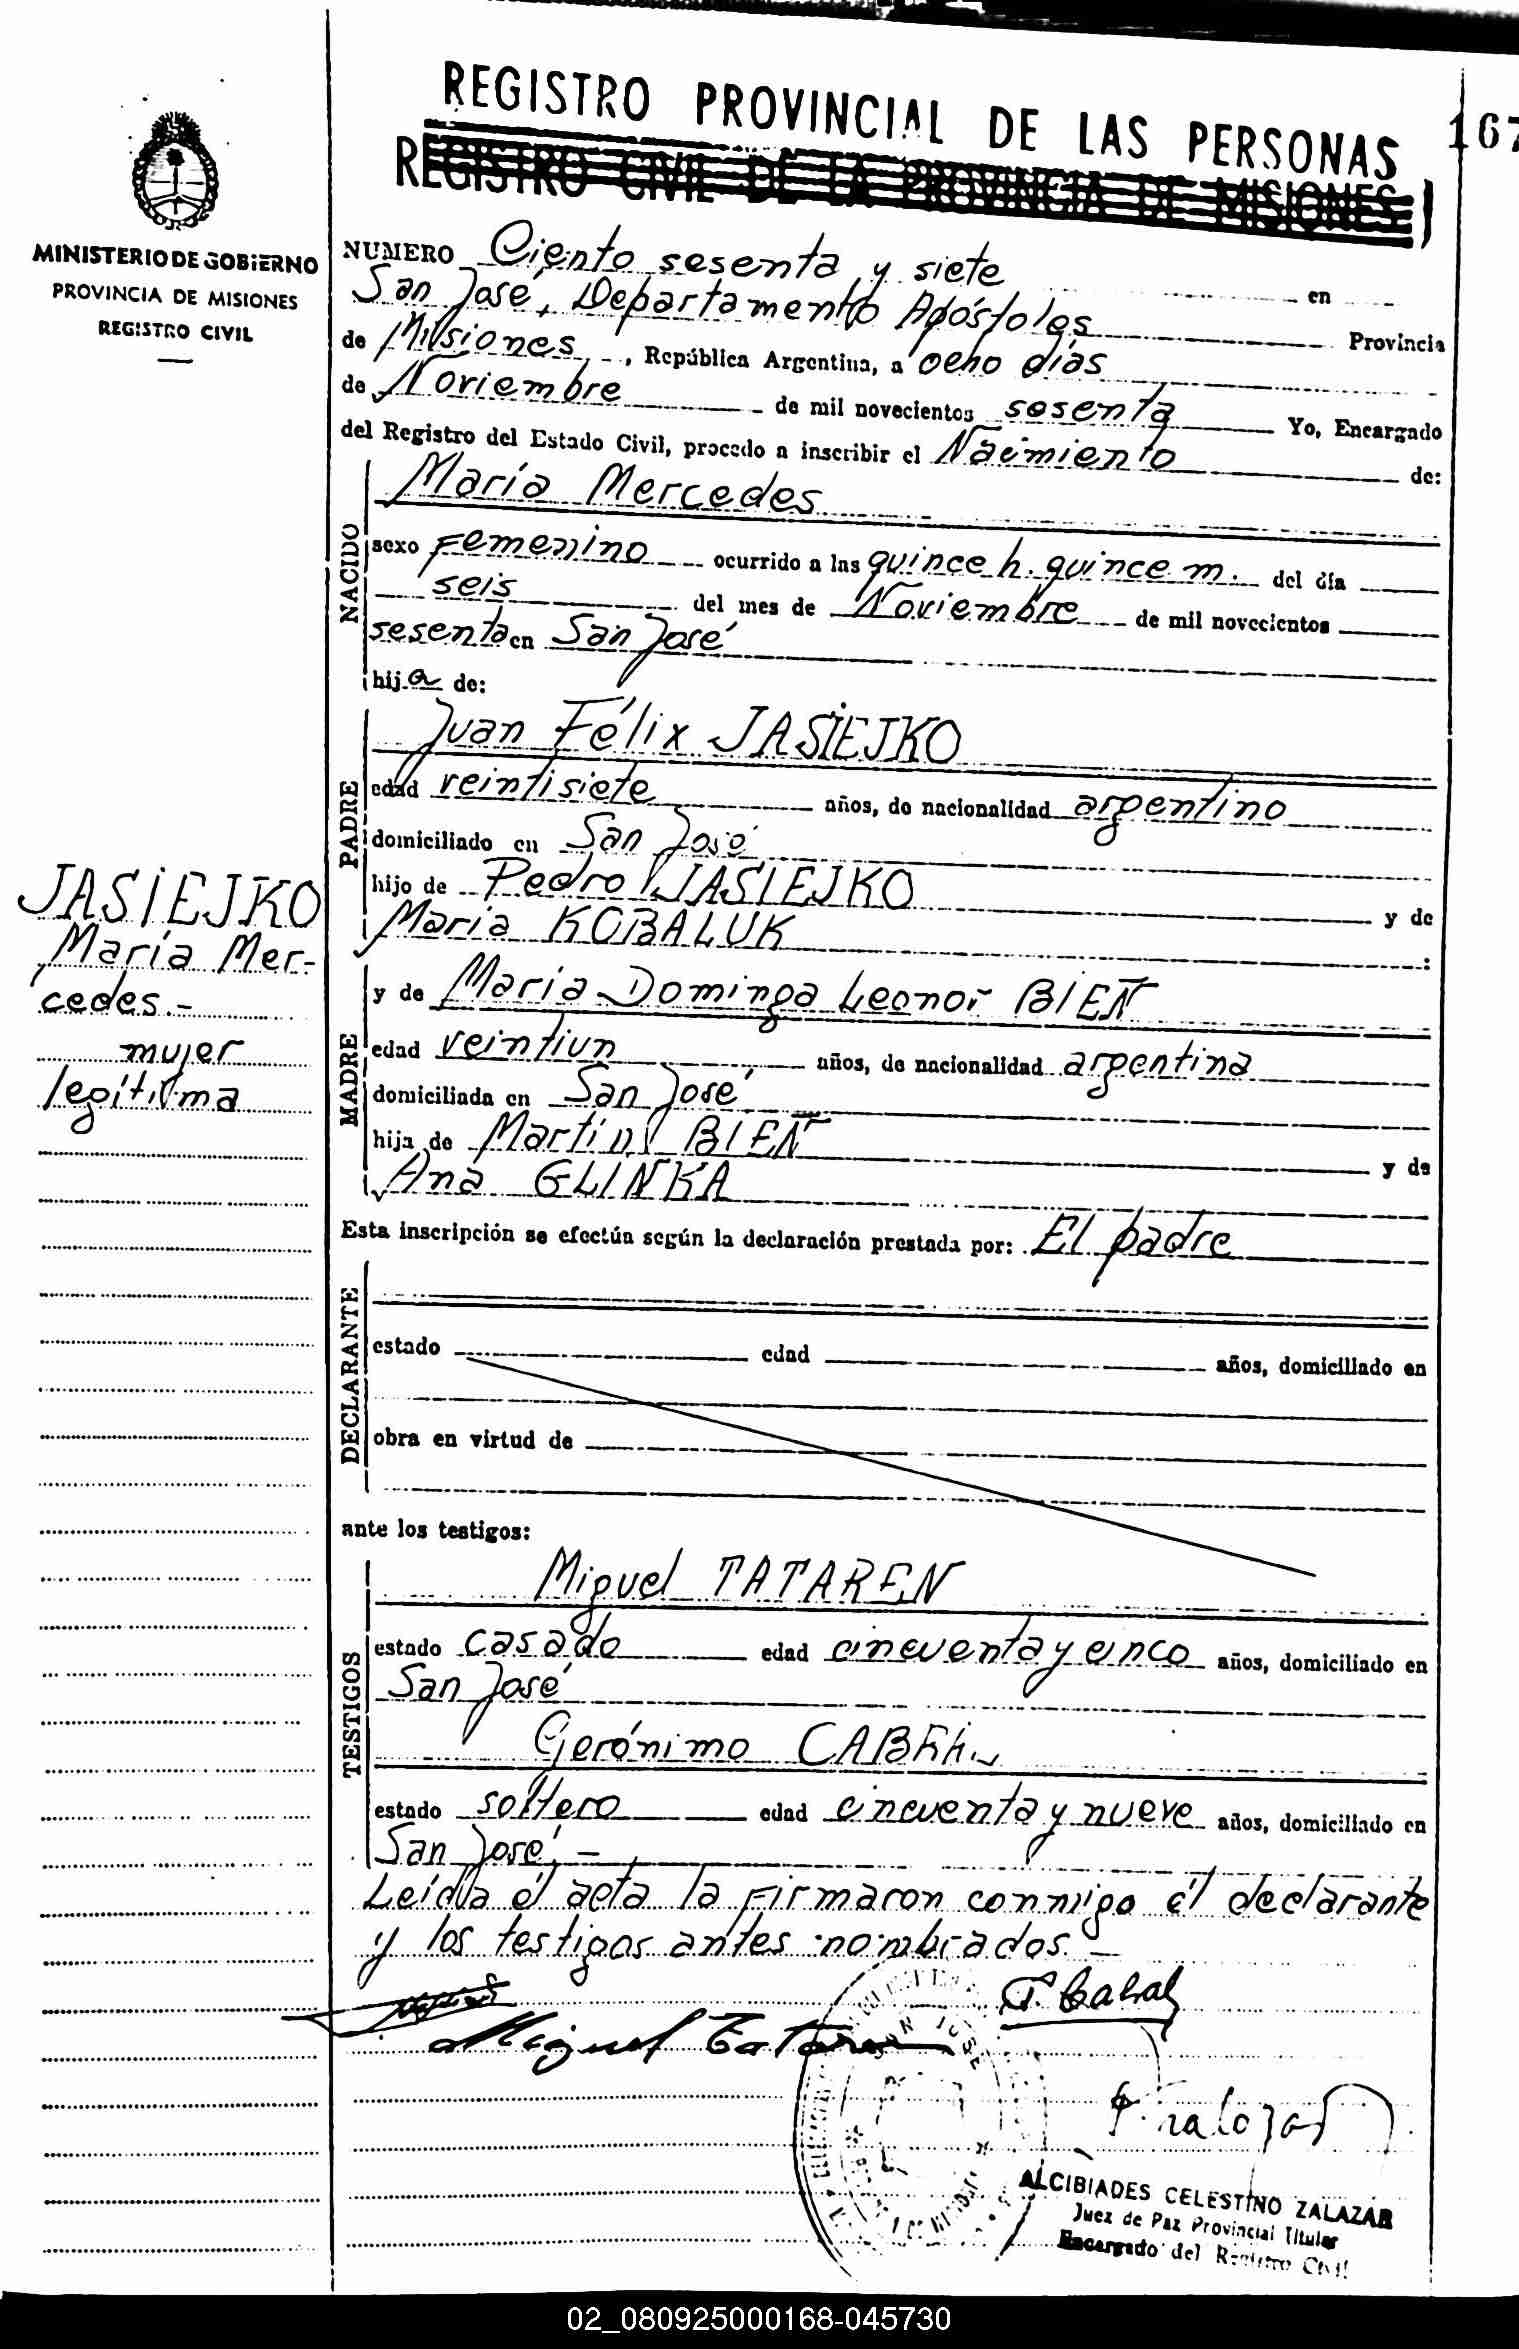 REGISTRO PROVINCIAL DE LAS PERSONAS
167
REGISTRO CIVIL DE LA PROVINCIA DE MISIONES
MINISTERIO DE GOBIERNO
PROVINCIA DE MISIONES
REGISTRO CIVIL
NUMERO Ciento sesenta y siete en
San José, Departamento Apóstoles Provincia
de Misiones, República Argentina, a ocho días
de Noviembre de mil novecientos sesenta Yo, Encargado
del Registro del Estado Civil, procedo a inscribir el Nacimiento de:
NACIDO
María Mercedes
sexo Femenino ocurrido a las quince h. quince m. del día
seis del mes de Noviembre de mil novecientos
sesenta en San José
hija de:
PADRE
Juan Félix JASIEJKO
edad veintisiete años, de nacionalidad argentino
domiciliado en San José
hijo de Pedro JASIEJKO y de
María KOBALUK
MADRE
y de María Dominga Leonor BIEÑ
edad veintiun años, de nacionalidad argentina
domiciliada en San José
hija de Martin BIEÑ y de
Ana GLINKA
JASIEJKO
María Mer-
cedes.-
mujer
legítima
Esta inscripción se efectúa según la declaración prestada por: El padre
DECLARANTE
estado edad años, domiciliado en
obra en virtud de
ante los testigos:
TESTIGOS
Miguel TATAREN
estado casado edad cincuenta y cinco años, domiciliado en
San José
Gerónimo CABRAL
estado soltero edad cincuenta y nueve años, domiciliado en
San José.-
Leída el acta la firmaron conmigo el declarante
y los testigos antes nombrados.-
G Cabral
Miguel Tataren
SAN JOSE
ALCIBIADES CELESTINO ZALAZAR
Juez de Paz Provincial Titular
Encargado del Registro Civil
02_080925000168-045730